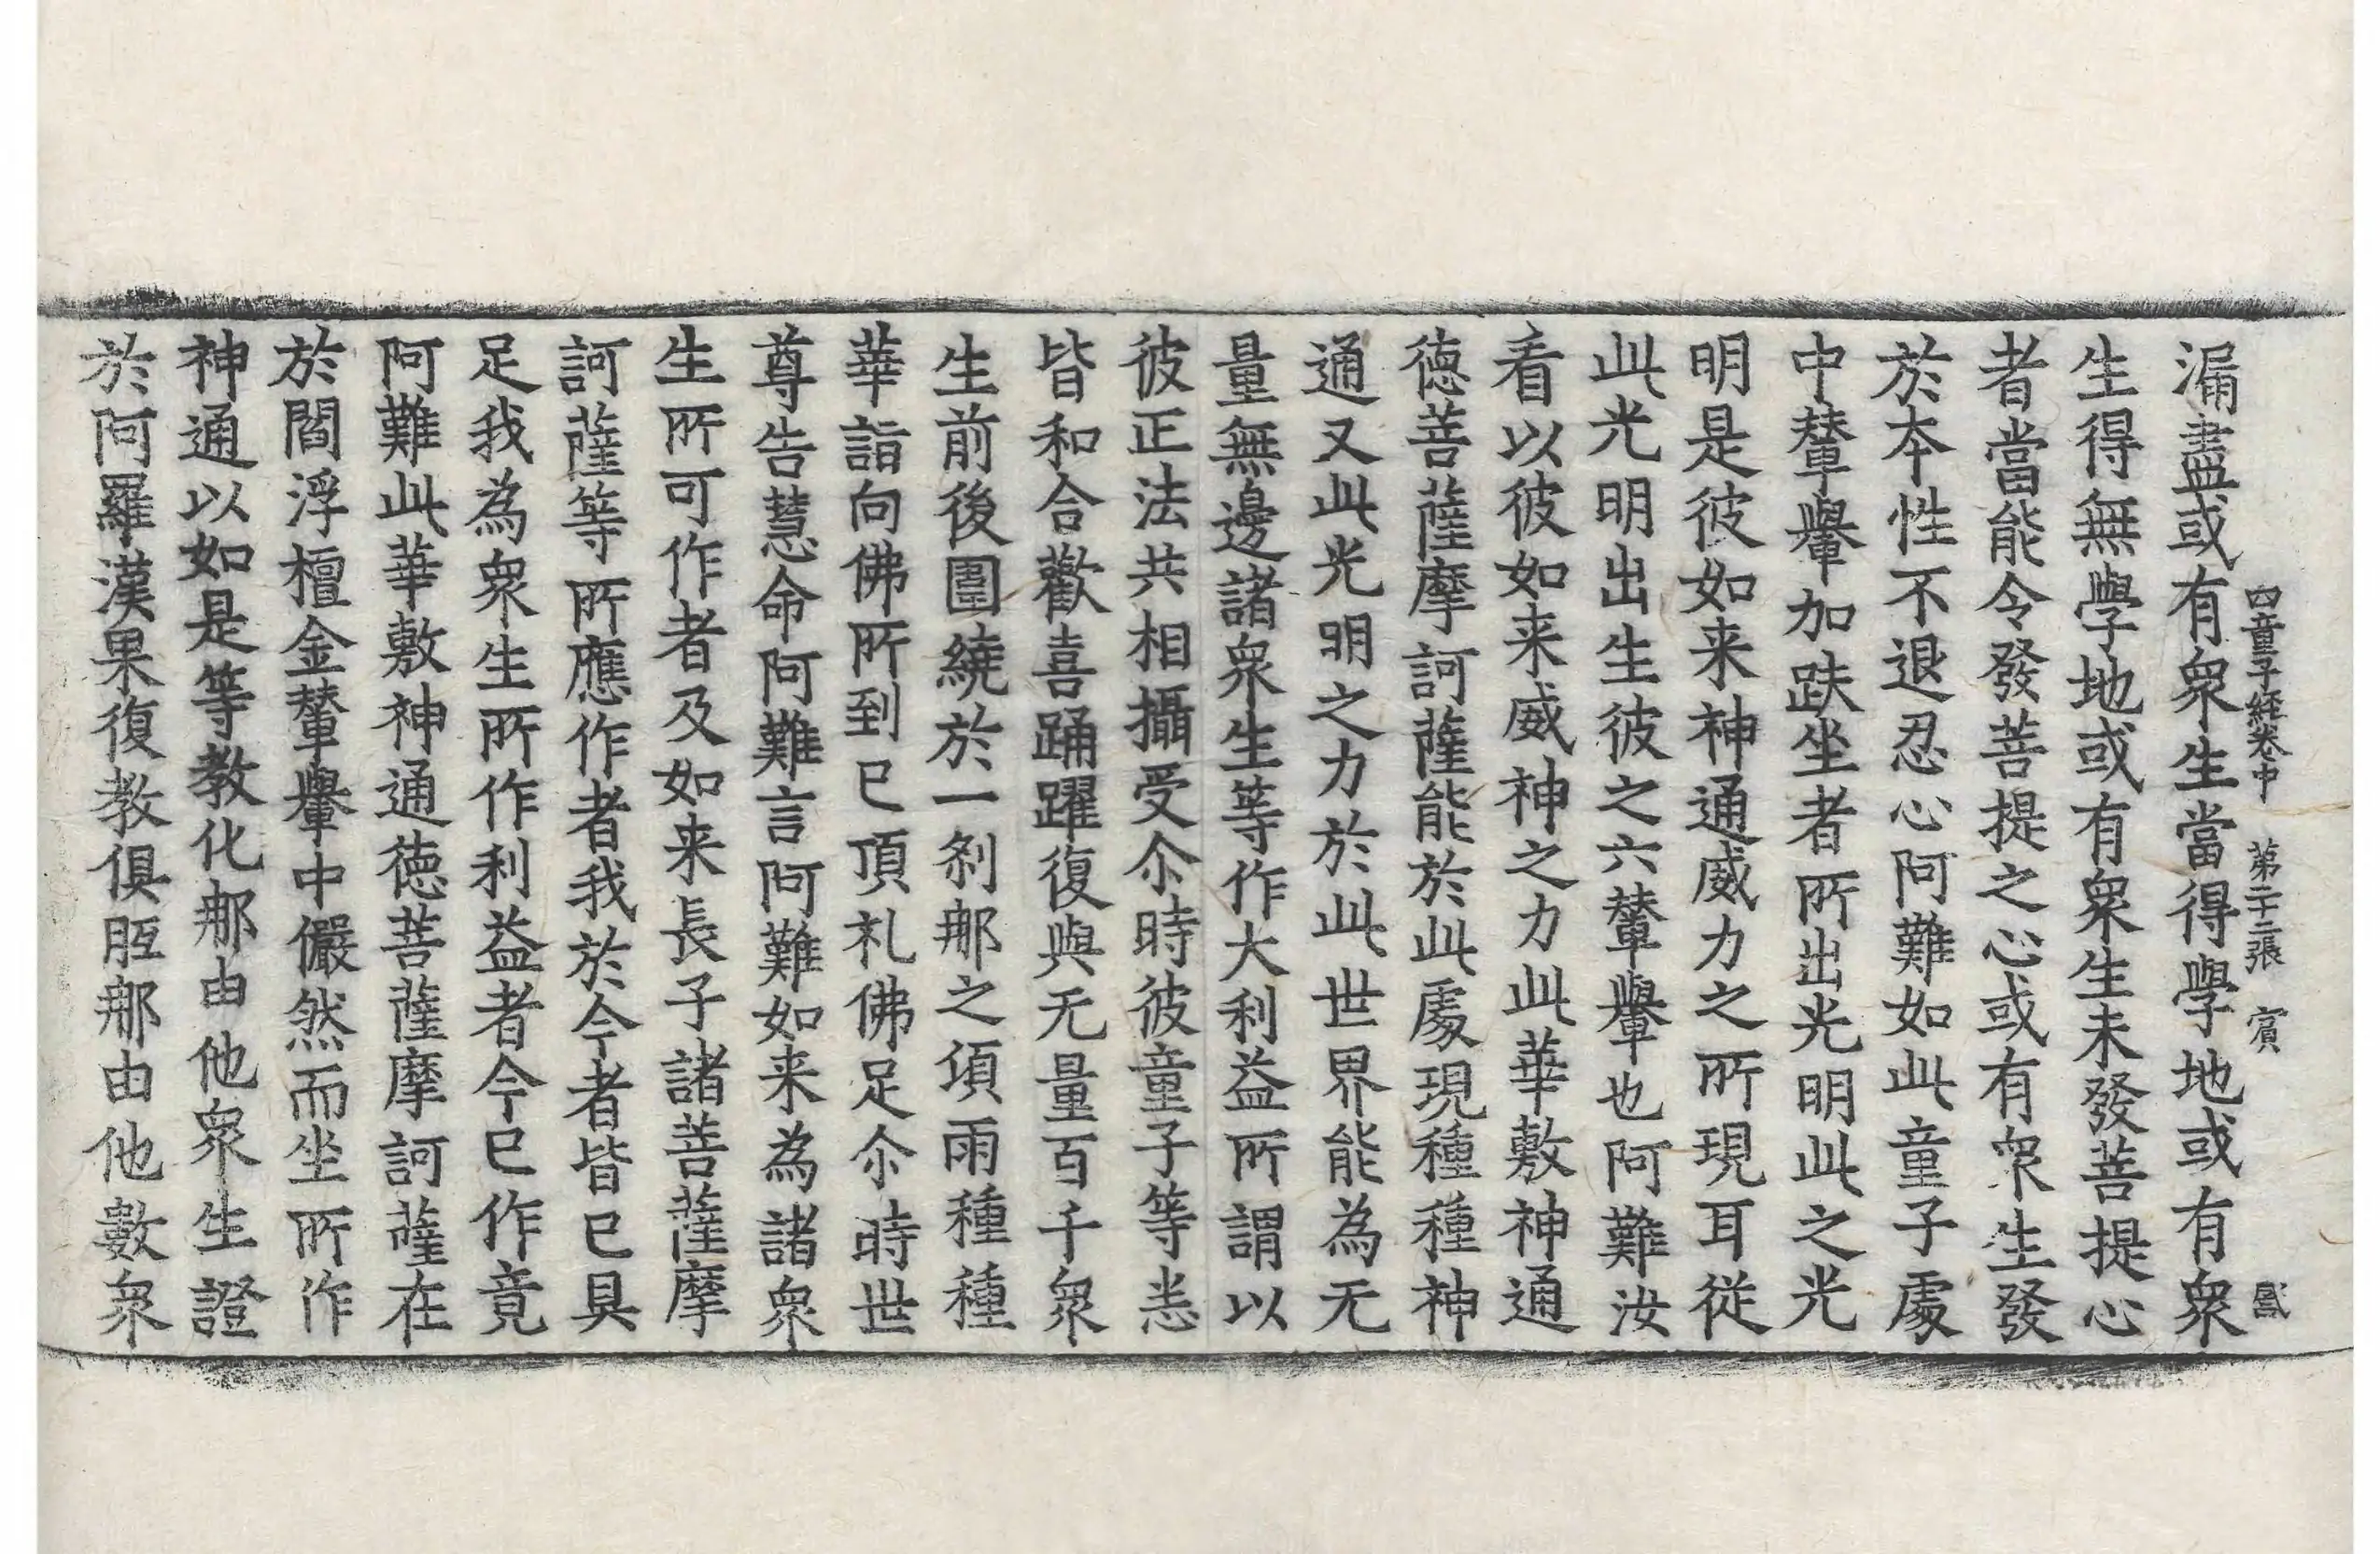 四童子経卷中 第二十三張 賓
漏盡或有衆生當得學地或有衆
生得無學地或有衆生未發菩提心
者當能令發菩提之心或有衆生發
於本性不退忍心阿難如此童子處
中輦轝加趺坐者所出光明此之光
明是彼如来神通威力之所現耳從
此光明出生彼之六輦轝也阿難汝
看以彼如来威神之力此華敷神通
德菩薩摩訶薩能於此處現種種神
通又此光明之力於此世界能為无
量無邊諸衆生等作大利益所謂以
彼正法共相攝受尒時彼童子等恙
皆和合歡喜踊躍復與无量百千衆
生前後圍繞於一刹那之項雨種種
華詣向佛所到已頂礼佛足尒時世
尊告慧命阿難言阿難如来為諸衆
生所可作者及如来長子諸菩薩摩
訶薩等所應作者我於今者皆已具
足我為衆生所作利益者今已作竟
阿難此華敷神通德菩薩摩訶薩在
於閻浮檀金輦轝中儼然而坐所作
神通以如是等教化那由他衆生證
於阿羅漢果復教俱胝那由他數衆